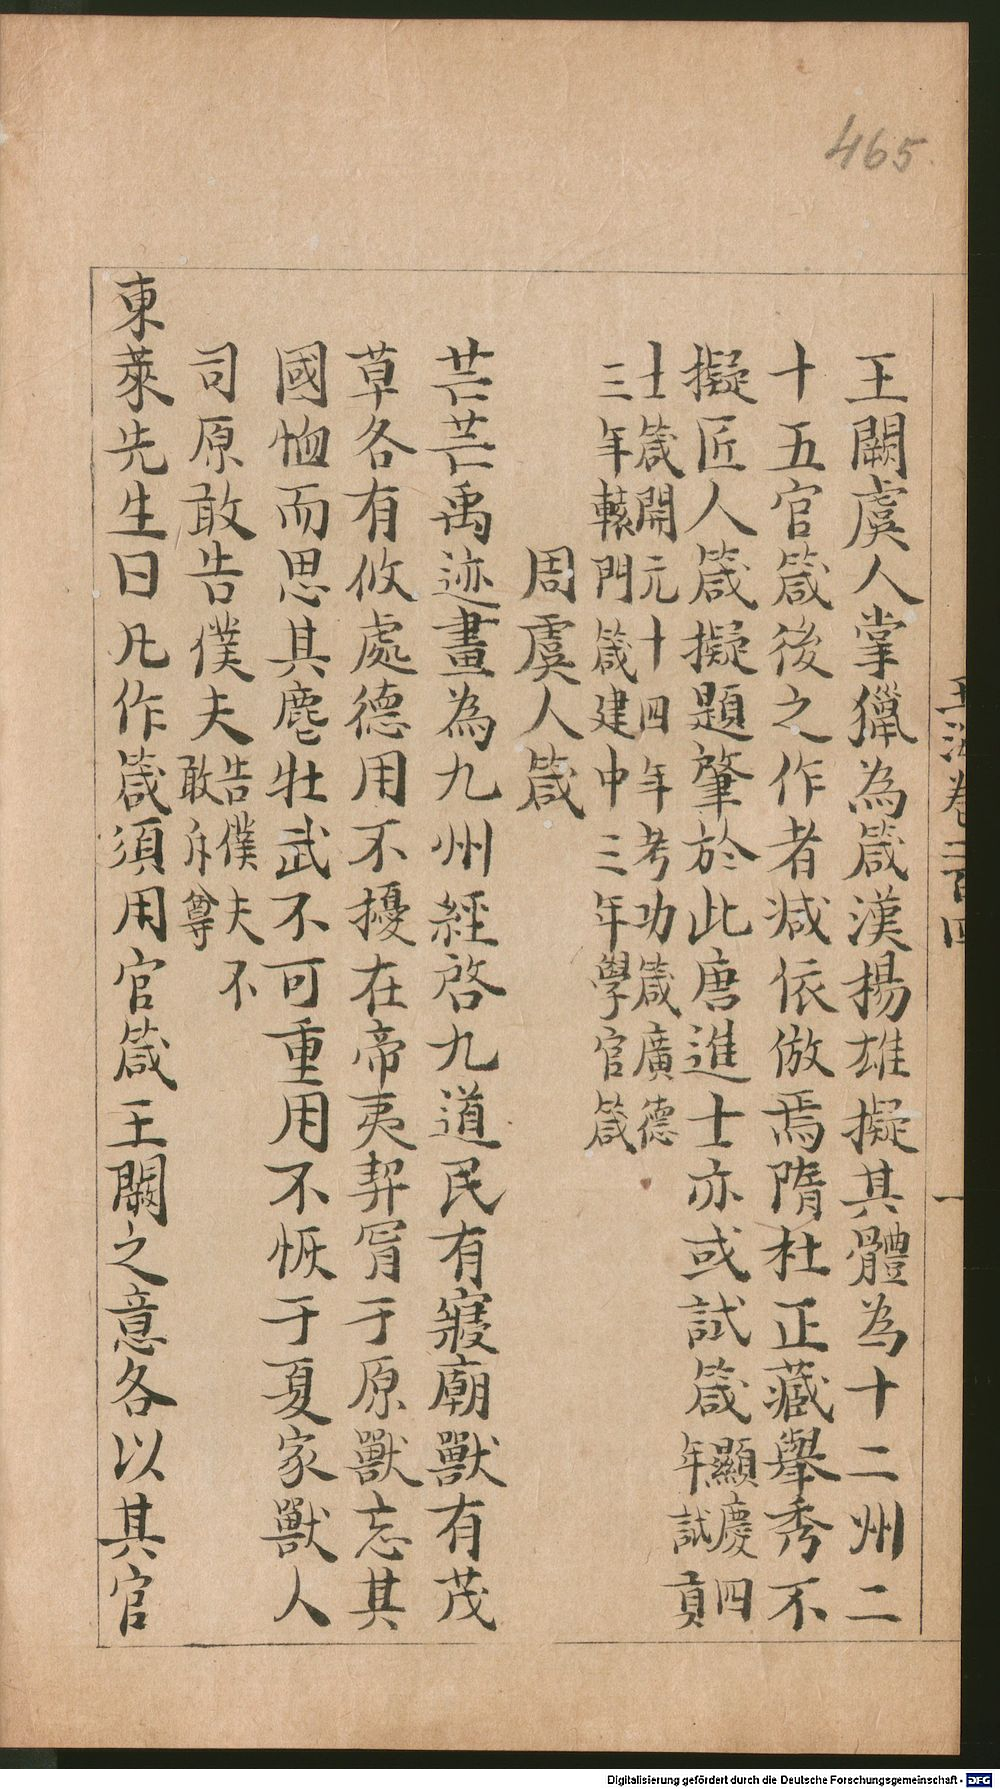 465
玉海卷二百四
一
王闕虞人掌獵為箴漢揚雄擬其體為十二州二
十五官箴後之作者咸依倣焉隋杜正藏舉秀不
擬匠人箴擬題肇於此唐進士亦或試箴顯慶四
年試貢
士箴開元十四年考功箴廣德
三年轅門箴建中三年學官箴
周虞人箴
芒芒禹迹畫為九州經啓九道民有寢廟獸有茂
草各有攸處德用不擾在帝夷羿冒于原獸忘其
國恤而思其麀牡武不可重用不恢于夏家獸人
司原敢告僕夫告僕夫不
敢斥尊
東萊先生曰凡作箴須用官箴王闕之意各以其官
Digitalisierung gefördert durch die Deutsche Forschungsgemeinschaft - DFG